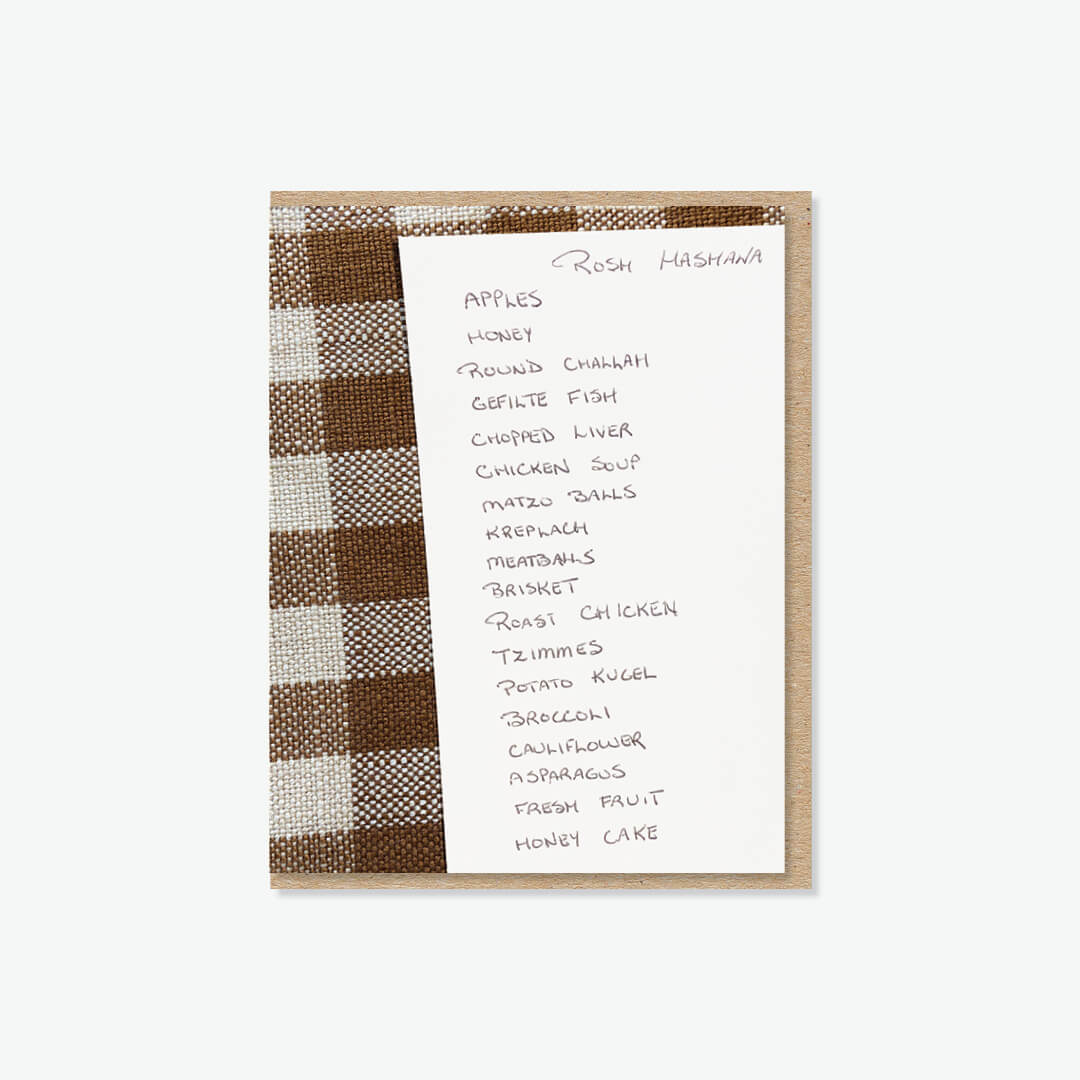 ROSH HASHANA
APPLES
HONEY
ROUND CHALLAH
GEFILTE FISH
CHOPPED LIVER
CHICKEN SOUP
MATZO BALLS
KREPLACH
MEATBALLS
BRISKET
ROAST CHICKEN
TZIMMES
POTATO KUGEL
BROCCOLI
CAULIFLOWER
ASPARAGUS
FRESH FRUIT
HONEY CAKE